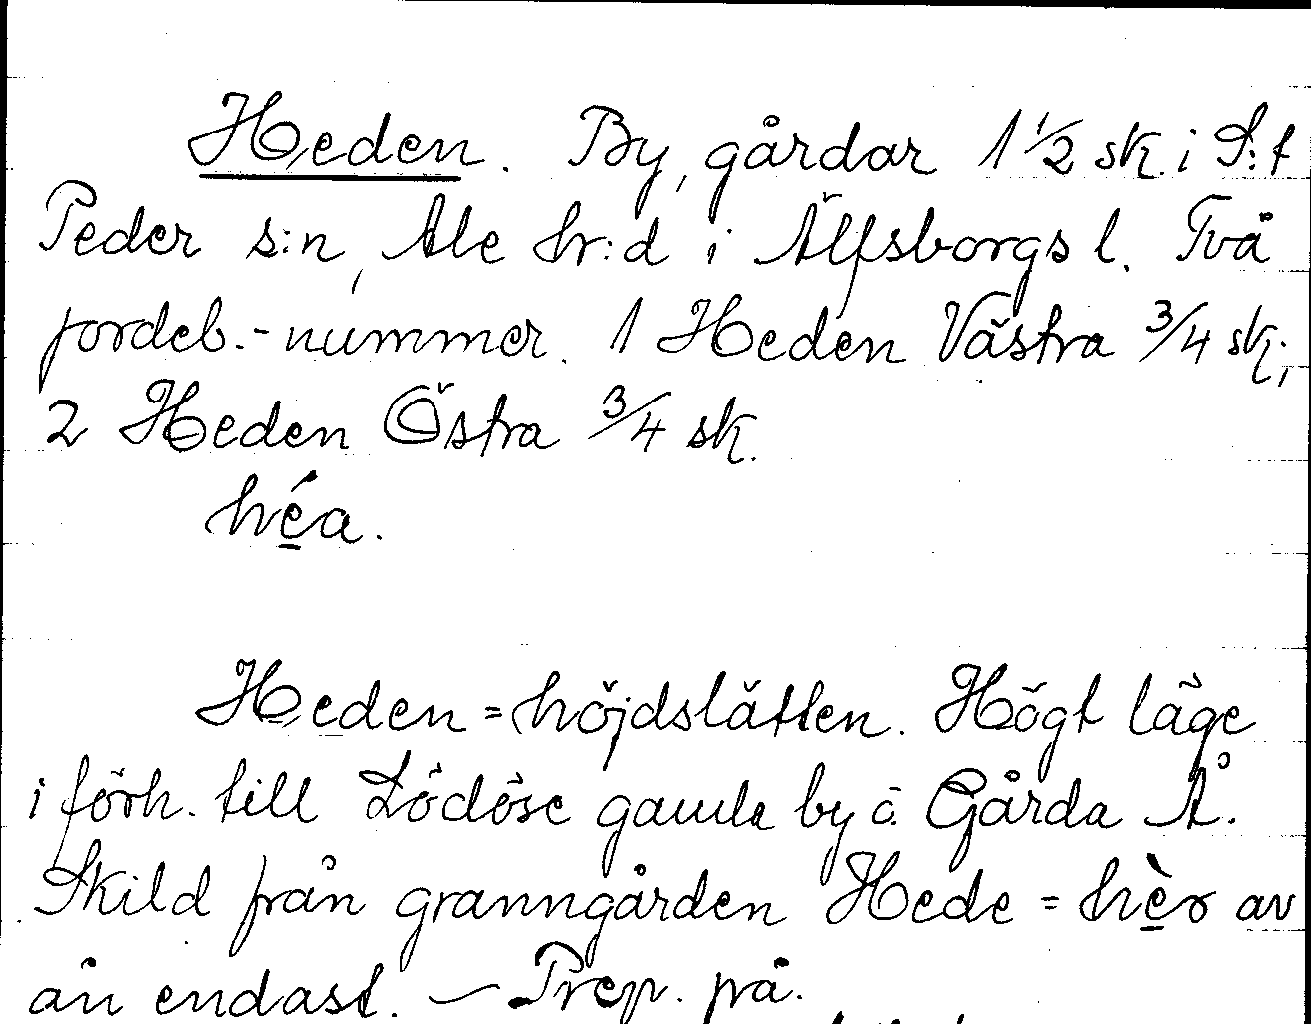 Heden. By, gårdar 1 1/2 sk. i S:t
Peder s:n, Ale hr:d i Älfsborgs l. Två
jordeb.-nummer. 1 Heden Västra 3/4 sk.,
2 Heden Östra 3/4 sk.
héa.
Heden = höjdslätten. Högt läge
i förh. till Lödöse gamla by o. Gårda Å.
Skild från granngården Hede = hèr av
ån endast. — Prep. på.